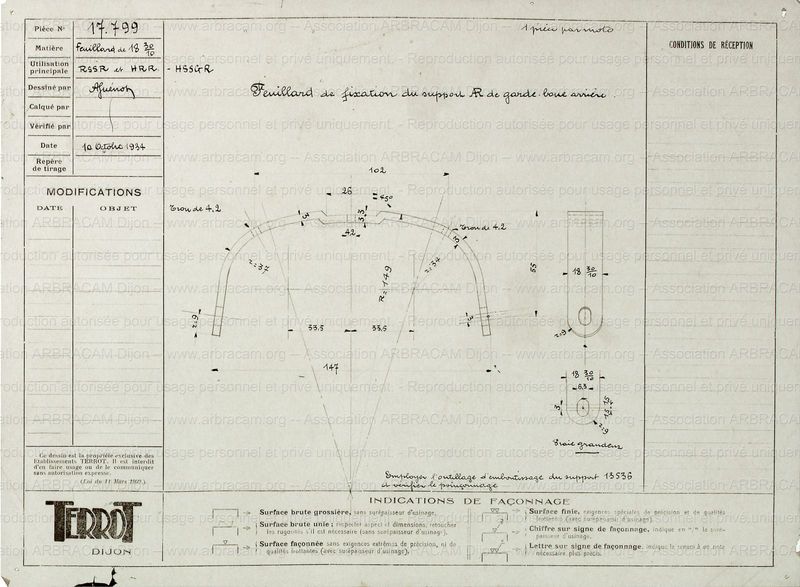 Pièce N° 17.799
Matière Feuillard de 18 30/10
Utilisation principale RSSR et HRR - HSSGR
Dessiné par
Calqué par
Vérifié par
Date 10 Octobre 1934
Repère de tirage
MODIFICATIONS
DATE OBJET
1 pièce par moto
CONDITIONS DE RÉCEPTION
Feuillard de fixation du support AR de garde boue arrière.
102
26
450
Trou de 4.2
3
3 3
42
Trou de 4.2
3
r=37
R=149
r=37
55
18 30/10
r=9
3
33.5 33.5
147
r=9
18 30/10
6,3
3
r=9
Vraie grandeur
Employer l'outillage d'emboutissage du support 13536
et vérifier le poinçonnage
Ce dessin est la propriété exclusive des
Etablissements TERROT. Il est interdit
d'en faire usage ou de le communiquer
sans autorisation expresse.
(Loi du 11 Mars 1902.)
TERROT
DIJON
INDICATIONS DE FAÇONNAGE
Surface brute grossière, sans surépaisseur d'usinage.
Surface brute unie; respecter aspect et dimensions, retoucher
les rugosités s'il est nécessaire (sans surépaisseur d'usinage).
Surface façonnée sans exigences extrêmes de précision, ni de
qualités frottantes (avec surépaisseur d'usinage).
Surface finie, exigences spéciales de précision et de qualités
frottantes (avec surépaisseur d'usinage).
Chiffre sur signe de façonnage, indique en "/" la surépaisseur
d'usinage.
Lettre sur signe de façonnage, indique le renvoi à une note
nécessaire plus précis.
www.arbracam.org -- Association ARBRACAM Dijon -- Reproduction autorisée pour usage personnel et privé uniquement.